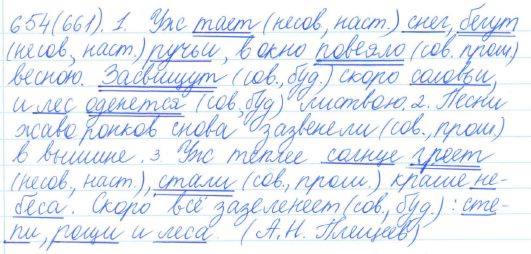 654(661). 1. Уж тает (несов, наст.) снег, бегут
(несов, наст.) ручьи, в окно повеяло (сов. прош)
весною. Засвищут (сов., буд.) скоро соловьи,
и лес оденется (сов, буд) листвою. 2. Песни
жаворонков снова зазвенели (сов., прош)
в вышине. 3 Уж теплее солнце греет
(несов., наст.), стали (сов., прош.) краше не-
беса. Скоро всё зазеленеет (сов, буд.) : сте-
пи, рощи и леса. (А.Н. Плещеев)